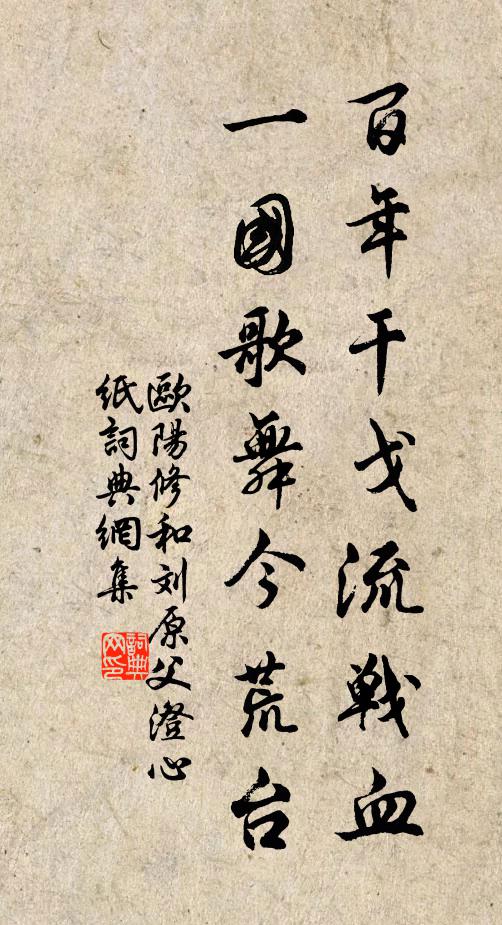 百年干戈流戦血
一國歌舞今荒台
歐陽修和刘原父澄心
紙詞典網集
詞典网印